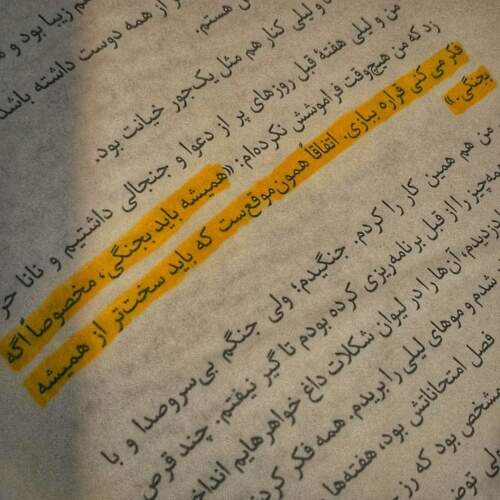 زیبا بود و
از همه دوست داشته باشد
هستم.
و لیلی کنار هم مثل یک‌جور خیانت بود.
من و لیلی هفتهٔ قبل روزهای پر از دعوا و جنجالی داشتیم و نانا حر
زد که من هیچ‌وقت فراموشش نکرده‌ام: «همیشه باید بجنگی، مخصوصاً اگه
فکر می کنی قراره ببازی. اتفاقاً همون موقع‌ست که باید سخت‌تر از همیشه
بجنگی.»
من هم همین کار را کردم. جنگیدم؛ ولی جنگم بی‌سروصدا و با
مه‌چیز را از قبل برنامه‌ریزی کرده بودم تا گیر نیفتم. چند قرص
دزدیدم، آن‌ها را در لیوان شکلات داغ خواهرهایم انداخ
شدم و موهای لیلی را بریدم. همه فکر کرد
فصل امتحاناتش بود، هفته‌ها
مشخص بود که رز
ولی توض